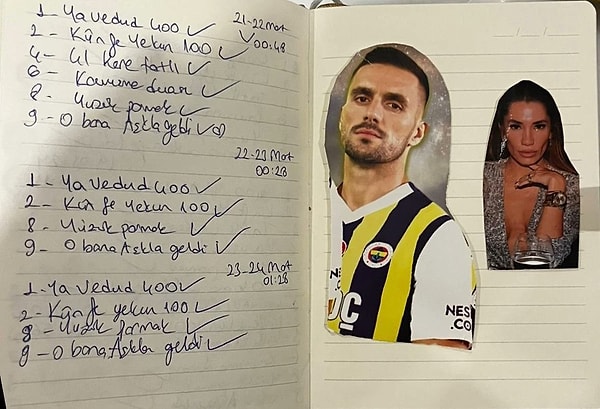 21-22 Mart
1- Ya Vedud 400 ✓
✓ 00:48
2- Kün fe Yekun 100 ✓
4- 41 Kere fatli ✓
6- Kavuşma duası ✓
8- Yüzük parmak ✓
9- O bana Aşkla geldi ✓
22-23 Mart
00:28
1- Ya Vedud 400 ✓
2- Kün fe Yekun 100 ✓
8- Yüzük parmak ✓
9- O bana Aşkla geldi ✓
23-24 Mart
01:28
1- Ya Vedud 400 ✓
2- Kün fe yekun 100 ✓
8- Yüzük parmak ✓
9- O bana Aşkla geldi ✓
FENERBAHÇE
NES
.CO
OÇ
NES
.CO